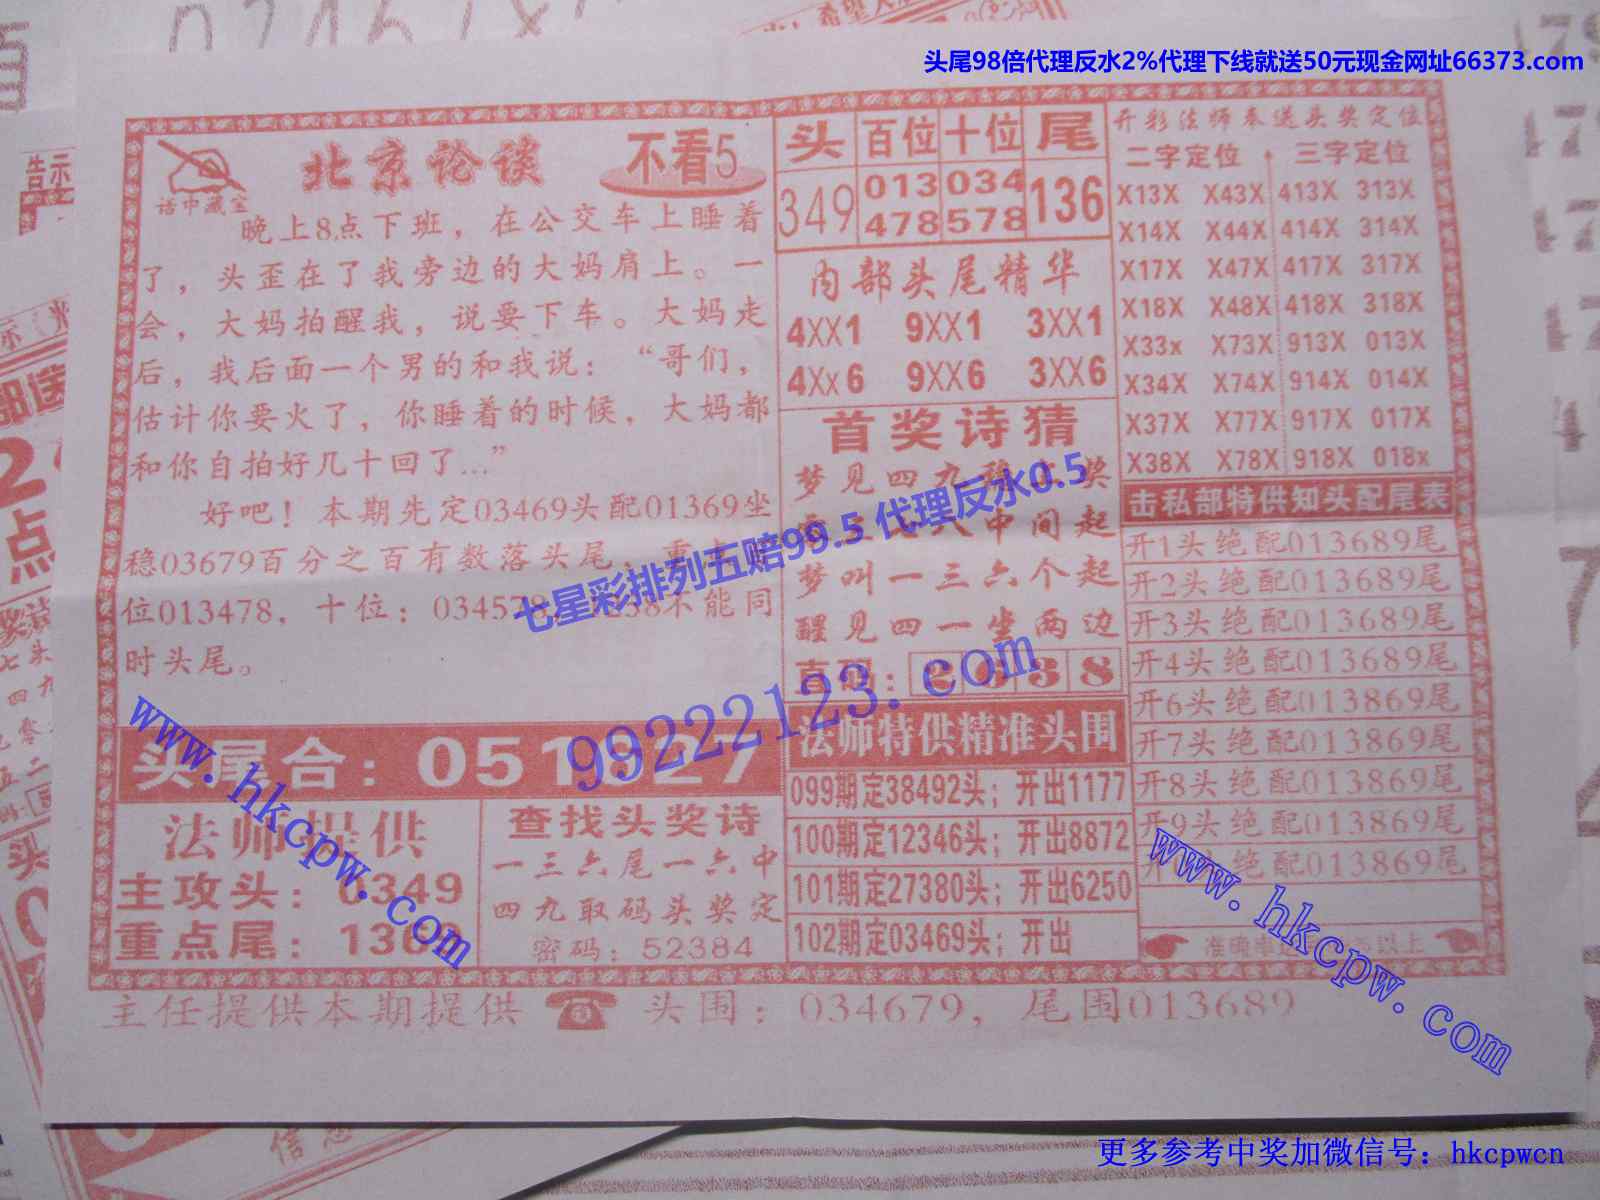 头尾98倍代理反水2%代理下线就送50元现金网址66373.com
告示
北京论谈
不看5
话中藏宝
晚上8点下班，在公交车上睡着
了，头歪在了我旁边的大妈肩上。一
会，大妈拍醒我，说要下车。大妈走
后，我后面一个男的和我说：“哥们，
估计你要火了，你睡着的时候，大妈都
和你自拍好几十回了…”
好吧！本期先定03469头配01369坐
稳03679百分之百有数落头尾
位013478，十位：034578 38不能同
时头尾。
头尾合：051627
法师提供
主攻头：0349
重点尾：136
查找头奖诗
一三六尾一六中
四九取码头奖定
密码：52384
头 百位 十位 尾
349 013 034 136
478 578
内部头尾精华
4XX1 9XX1 3XX1
4Xx6 9XX6 3XX6
首奖诗猜
梦见四九 奖
八中间起
梦叫一三六个起
醒见四一坐两边
直码：2638
法师特供精准头围
099期定38492头；开出1177
100期定12346头；开出8872
101期定27380头；开出6250
102期定03469头；开出
开彩法师奉送头奖定位
二字定位 三字定位
X13X X43X 413X 313X
X14X X44X 414X 314X
X17X X47X 417X 317X
X18X X48X 418X 318X
X33x X73X 913X 013X
X34X X74X 914X 014X
X37X X77X 917X 017X
X38X X78X 918X 018x
击私部特供知头配尾表
开1头绝配013689尾
开2头绝配013689尾
开3头绝配013689尾
开4头绝配013689尾
开6头绝配013869尾
开7头绝配013869尾
开8头绝配013869尾
开9头绝配013869尾
开 头绝配013869尾
准确率 以上
主任提供本期提供 头围：034679，尾围013689
七星彩排列五赔99.5 代理反水0.5
99222123.com
www.hkcpw.com
www.hkcpw.com
更多参考中奖加微信号：hkcpwcn